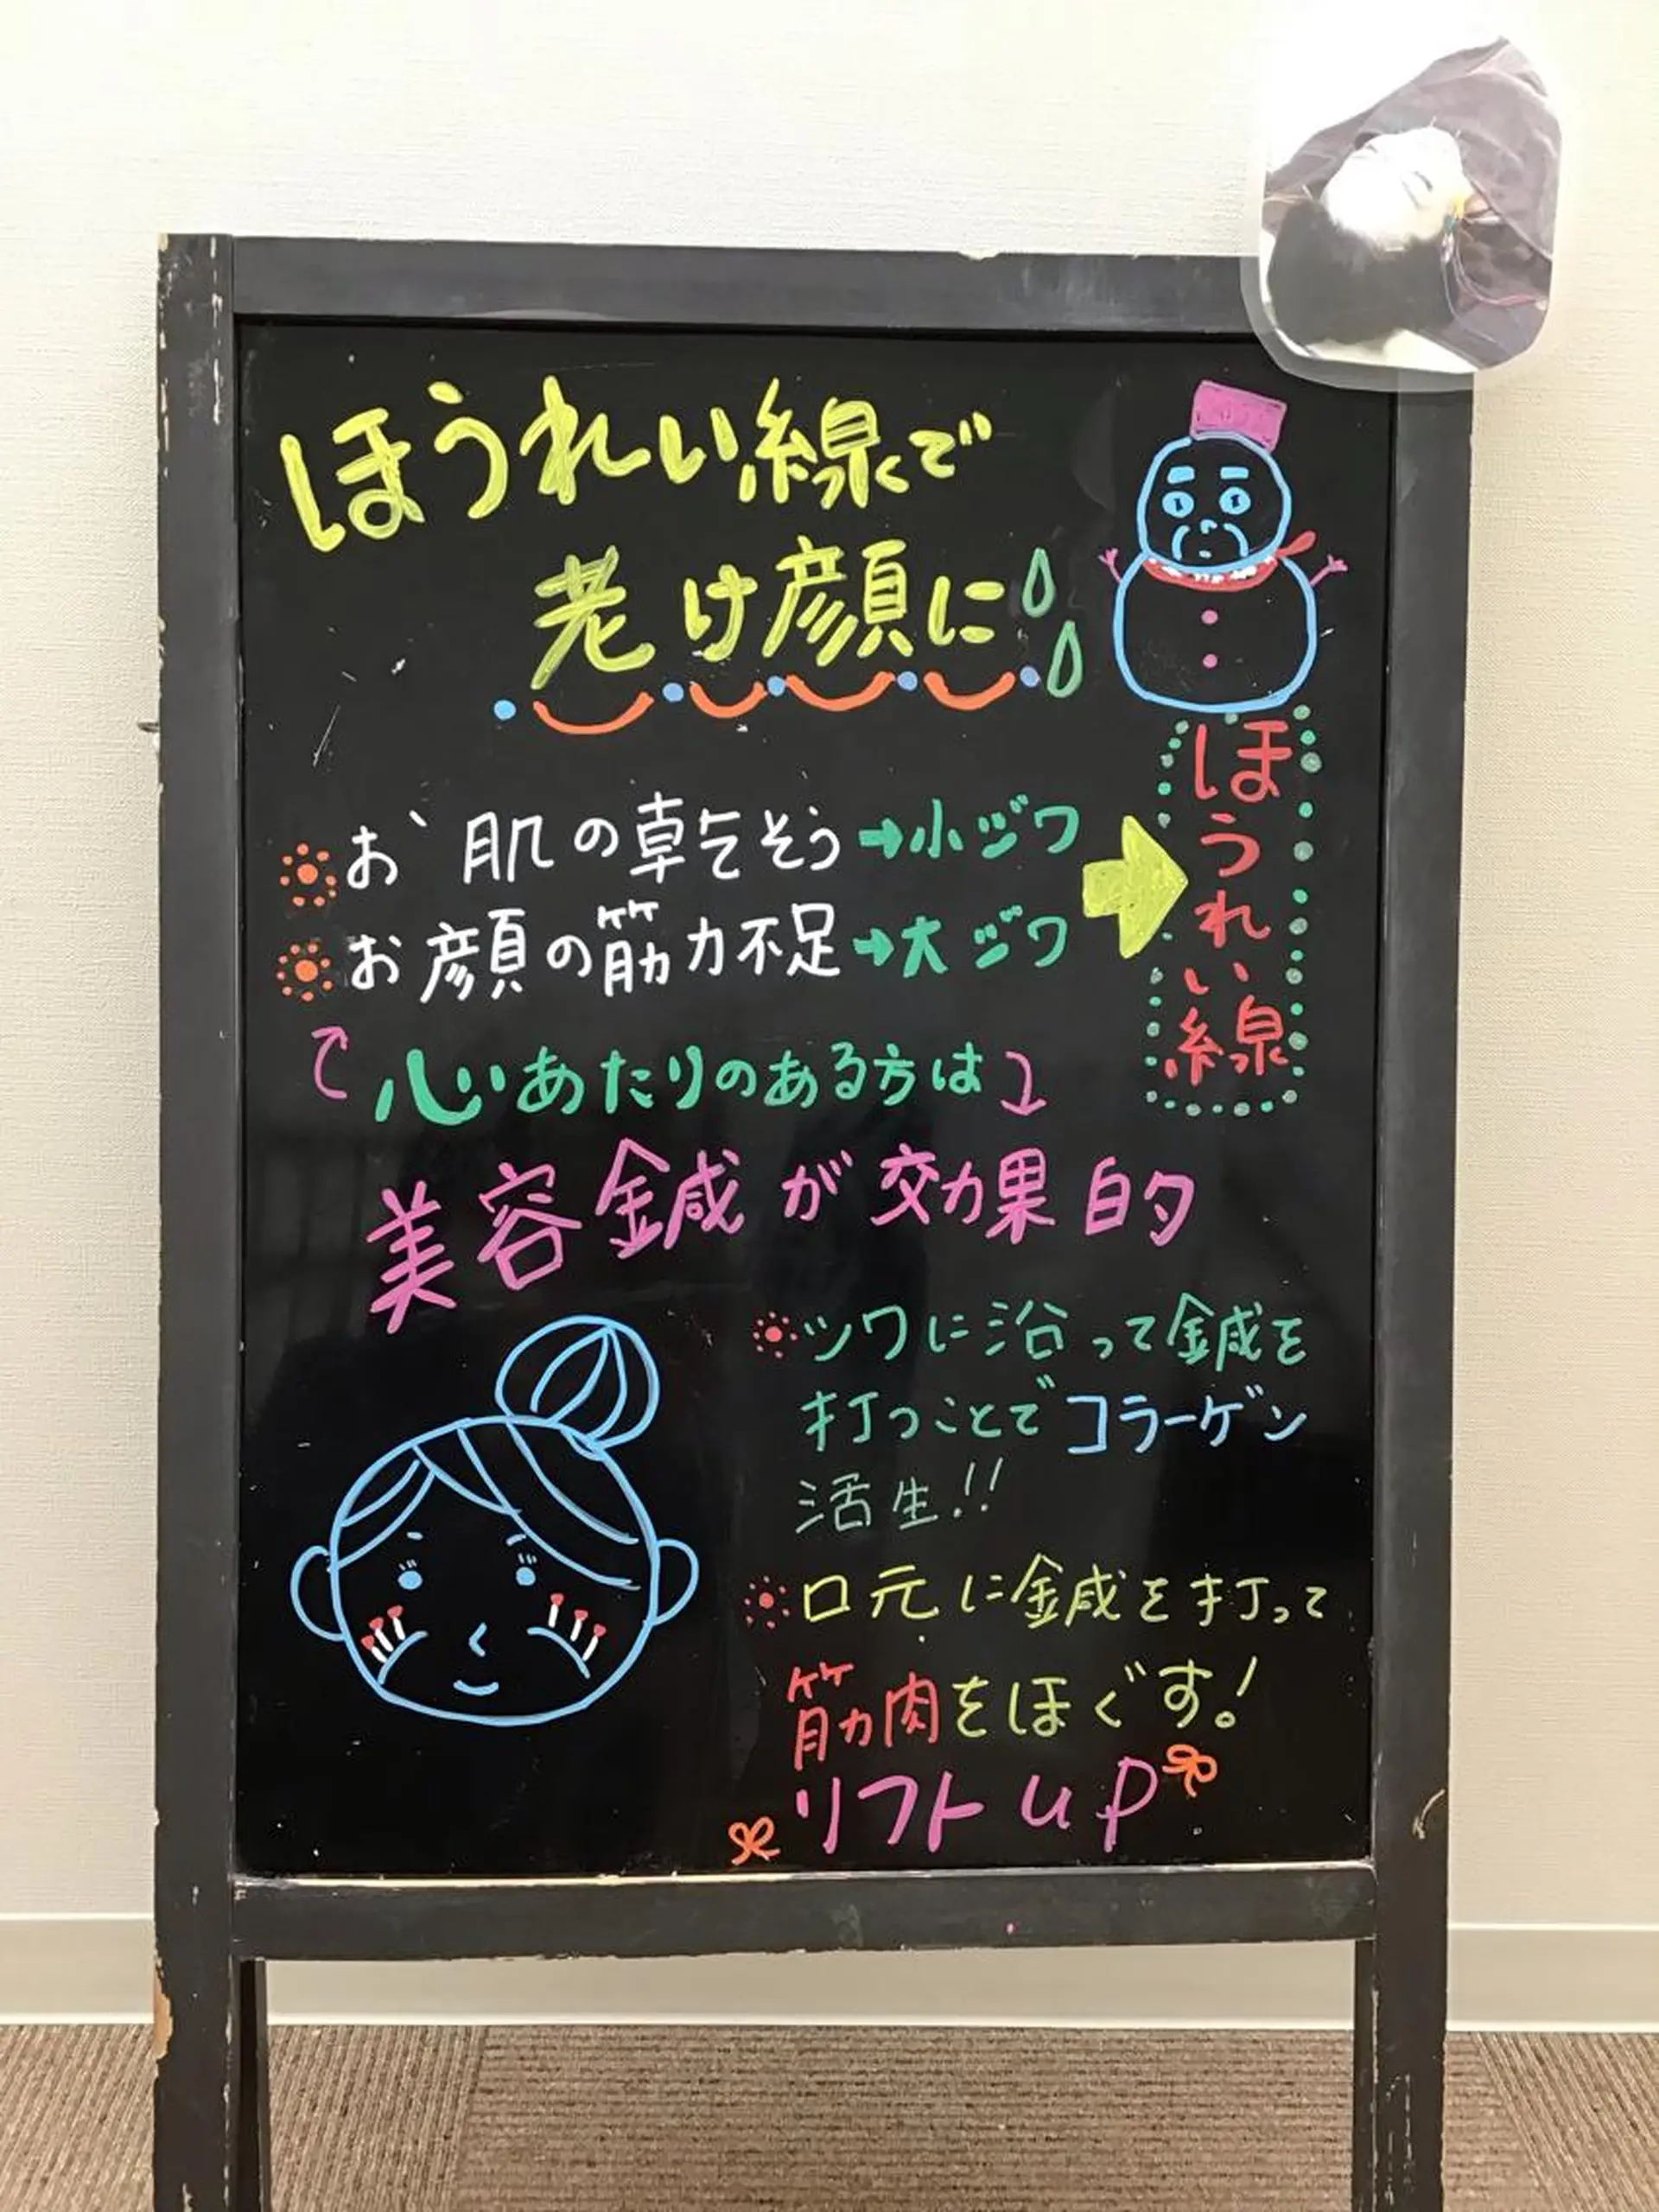 ほうれい線で
老け顔に
お肌の乾そう→小ジワ
お顔の筋力不足→大ジワ
ほうれい線
心あたりのある方は
美容鍼が効果的
シワに沿って鍼を
打つことでコラーゲン
活生!!
口元に鍼を打って
筋肉をほぐす!
リフトup